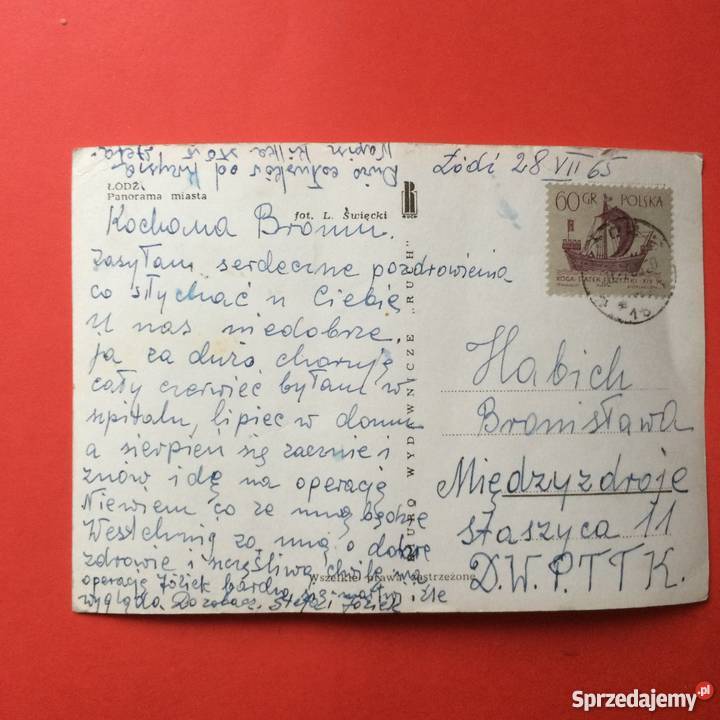 Dużo całusków od Krzysia
Napisz kilka słów
Łódź 28 VII 65
ŁÓDŹ
Panorama miasta
fot. L. Święcki
RUCH
60 GR POLSKA
KOGA-STATEK HANZEATYCKI XIV W.
Kochana Broniu.
Zasyłam serdeczne pozdrowienia
co słychać u Ciebie
U nas niedobrze,
ja za dużo choruję
cały czerwiec byłam w
szpitalu, lipiec w domu
a sierpień się zacznie i
znów idę na operację
Niewiem co ze mną będzie
Westchnij za mną o dobre
zdrowie i szczęśliwą chwilę na
operację Józiek bardzo się martwi i źle
wygląda Do zobacz. Stefa i Józiek
BIURO WYDAWNICZE „RUCH"
Wszelkie prawa zastrzeżone
Habich
Bronisława
Międzyzdroje
Staszyca 11
D.W.P.T.T.K.
Sprzedajemy.pl